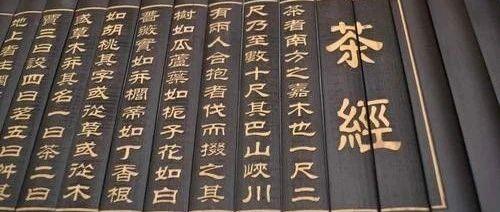 茶經
茶者南方之嘉木也一尺二
尺乃至數十尺其巴山峽川
有兩人合抱者伐而掇之其
樹如瓜蘆葉如栀子花如白
薔薇實如并櫚帝如丁香根
如胡桃其字或從草或從木
或草木并其名一曰茶二曰
賈三曰設四曰名五曰荈其
地上者生